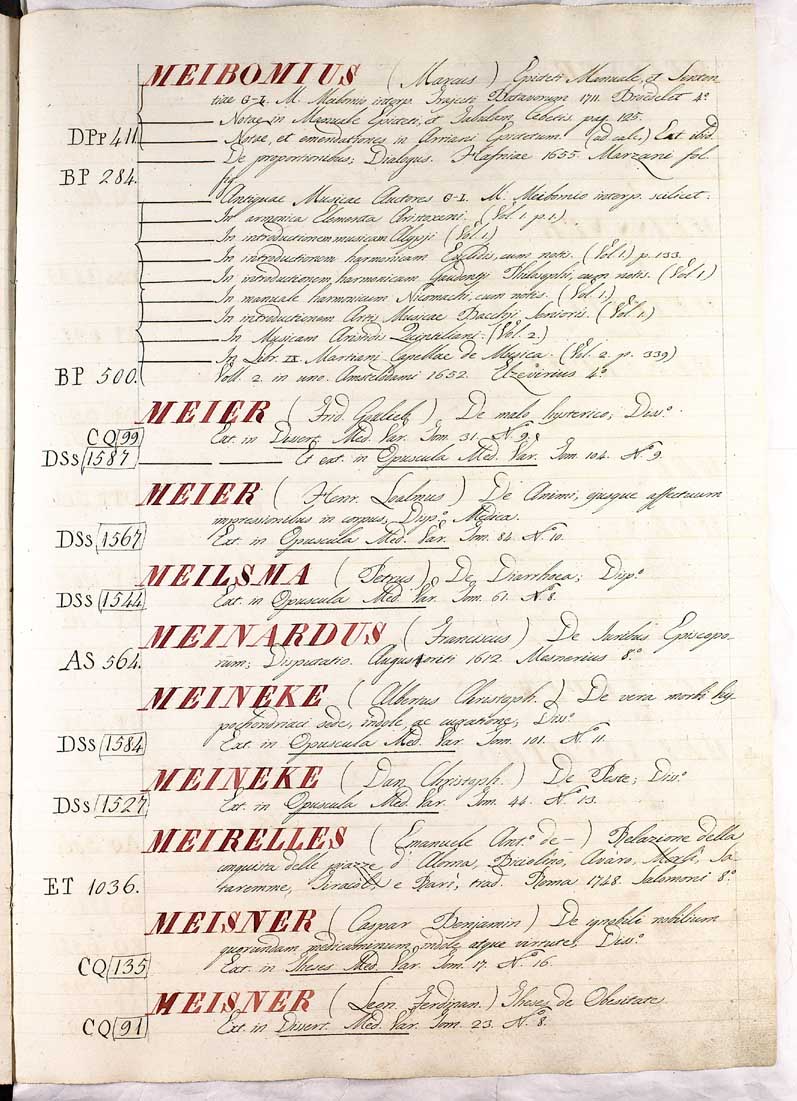 MEIBOMIUS ( Marcus ) Epicteti Manuale, et Senten
tiae G-L. M. Meibomio interp. Trajecti Batavorum 1711. Broedelet 4º
Notae in Manuale Epicteti, et Tabulam Cebetis pag. 125.
DPp 411 Notae, et emendationes in Arriani Epictetum. (ad calc.) Ext. ibid.
De proportionibus; Dialogus. Hafniae 1655. Marzani fol.
BP 284.
Antiquae Musicae Auctores G-L. M. Meibomio interp. scilicet.
In armonica Elementa Aristoxeni. (Vol 1. p. 1.)
In introductionem musicam Alypji (Vol 1.)
In introductionem harmonicam Euclidis, cum notis. (Vol 1.) p. 133.
In introductionem harmonicam Gaudentji Philosophi, cum notis. (Vol 1.)
In manuale harmonicum Nicomachi, cum notis. (Vol. 1.)
In introductionem Artis Musicae Bacchji Senioris. (Vol 1.)
In Musicam Aristidis Quintiliani. (Vol. 2.)
In Libr. IX. Martiani Capellae de Musica. (Vol. 2. p. 339)
BP 500. Voll. 2. in uno. Amstelodami 1652. Elzevirius 4º
MEIER ( Frid. Gottlieb ) De malo hysterico; Disº.
CQ 99 Ext. in Dissert. Med. Var. Tom. 31. Nº 9.
DSs 1587 Et ext. in Opuscula Med. Var. Tom. 104. Nº 9.
MEIER ( Henr. ) De Animi, ejusque affectuum
impressionibus in corpus, Dispº Medica.
DSs 1567 Ext. in Opuscula Med. Var. Tom. 84. Nº 10.
MEILSMA ( Petrus ) De Diarrhoea; Dispº
DSs 1544 Ext. in Opuscula Med. Var. Tom. 61. Nº 8.
MEINARDUS ( Franciscus ) De Juribus Episcopo-
AS 564. rum; Disputatio. Augustoriti 1612. Mesnerius 8º
MEINEKE ( Albertus Christoph. ) De vera morbi hy
pochondriaci sede, indole, ac curatione; Disº
DSs 1584 Ext. in Opuscula Med. Var. Tom. 101. Nº 11.
MEINEKE ( Dan. Christoph. ) De Peste; Disº
DSs 1527 Ext. in Opuscula Med. Var. Tom. 44. Nº 13.
MEIRELLES ( Emanuele Antº de - ) Relazione della
conquista delle piazze d' Alorna, Bicolino, Avaro, Morli, Sa-
ET 1036. taremme, Tiracol, e Rari, trad. Roma 1748. Salomoni 8º
MEISNER ( Caspar Benjamin ) De ignobili nobilium
quorundam medicaminum indole atque virtute; Disº
CQ 135 Ext. in Theses Med. Var. Tom. 17. Nº 16.
MEISNER ( Leon. Ferdinan. ) Theses de Obesitate
CQ 91 Ext. in Dissert. Med. Var. Tom. 23. Nº 8.